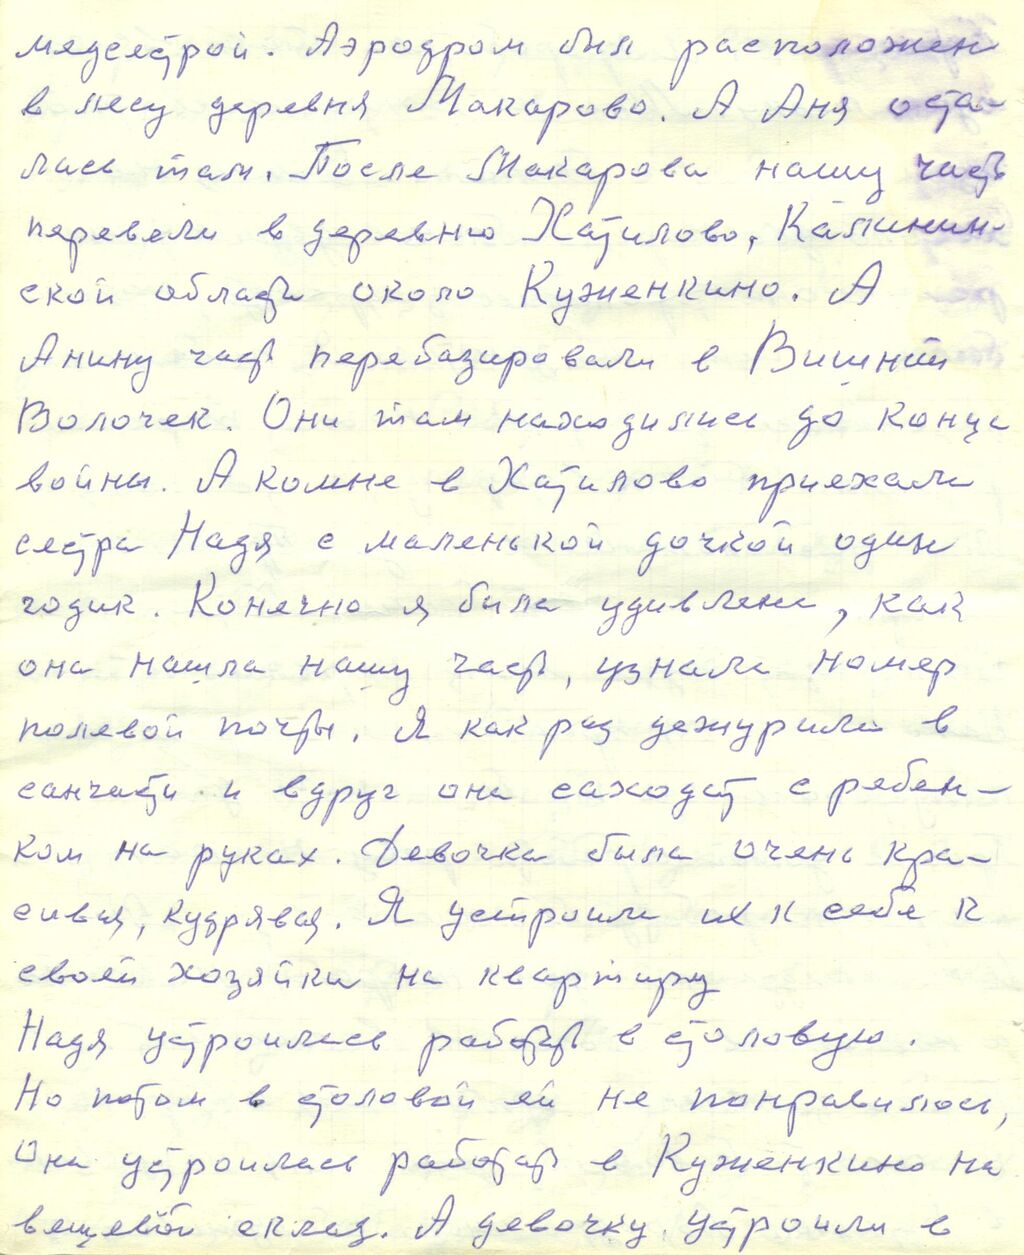 медсестрой. Аэродром был расположен
в лесу деревня Макарово. А Аня оста-
лась там. После Макарова нашу часть
перевели в деревню Хатилово, Калинин-
ской области около Куженкино. А
Анину часть перебазировали в Вишний
Волочек. Они там находились до конца
войны. А комне в Хатилово приехала
сестра Надя с маленькой дочкой один
годик. Конечно я была удивлена, как
она нашла нашу часть, узнала номер
полевой почты. Я как раз дежурила в
санчасти и вдруг она заходит с ребен-
ком на руках. Девочка была очень кра-
сивая, кудрявая. Я устроила их к себе к
своей хозяйки на квартиру
Надя устроилась работать в столовую.
Но потом в столовой ей не понравилось,
Она устроилась работать в Куженкино на
вещевой склад. А девочку устроили в